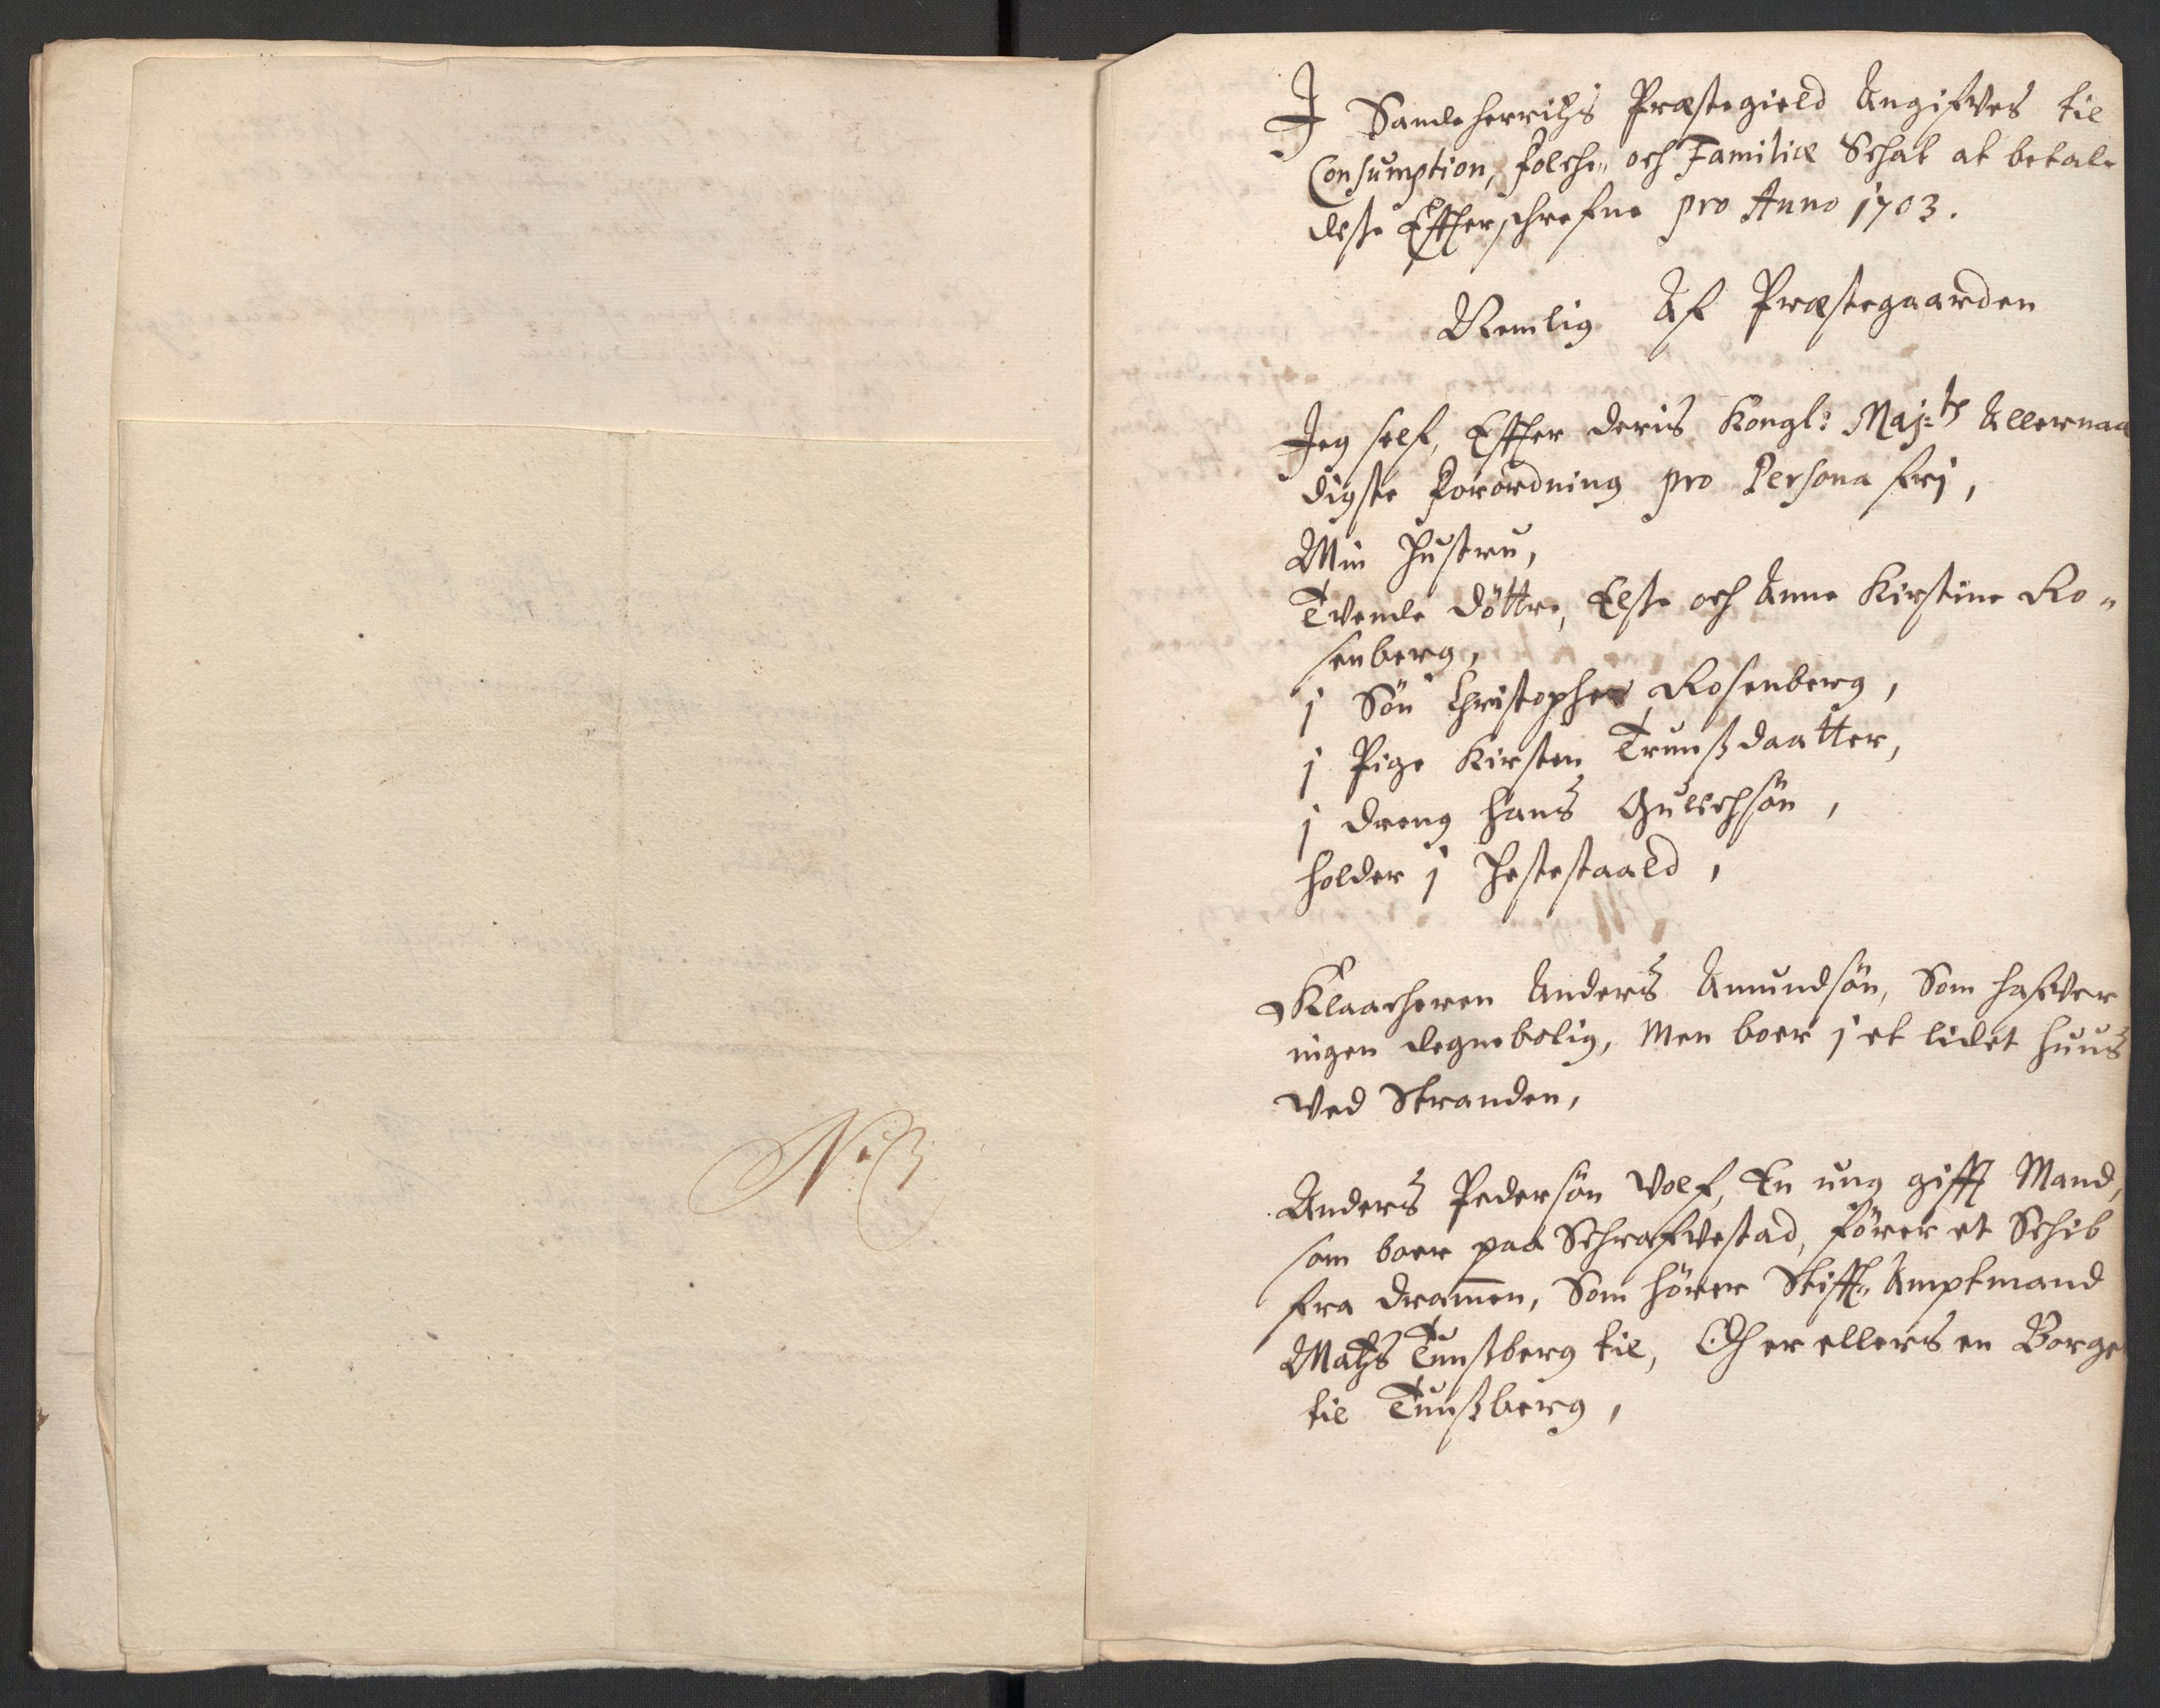 N: 3
I Sandeherritz Præstegield Angifves til
Consumption, Folche„ och Familiæ Schat at betale
desse Effterschrefne pro Anno 1703.
Nemlig Af Præstegaarden
Jeg self, Effter deris Kongl: Maj:ts Allernaa
digste Forordning pro Persona frj,
Min Hustru,
Tvende Döttre, Elsse och Anne Kirstine Ro„
senberg,
j Sön Christopher Rosenberg,
j Pige Kirsten Trunssdaatter,
j dreng Hans Gulichsön,
holder j Hestestaald,
Klaacheren Anders Amundsön, Som hafver
ingen degnebolig, Men boer j et lidet Huus
ved Stranden,
Anders Pedersön Volf, En ung gifft Mand,
som boer paa Schrafvestad, förer et Schib
fra Dramen, Som hörer Stifft„ Amptmand
Matz Tunssberg til, Och er ellers en Borge
til Tunssberg,